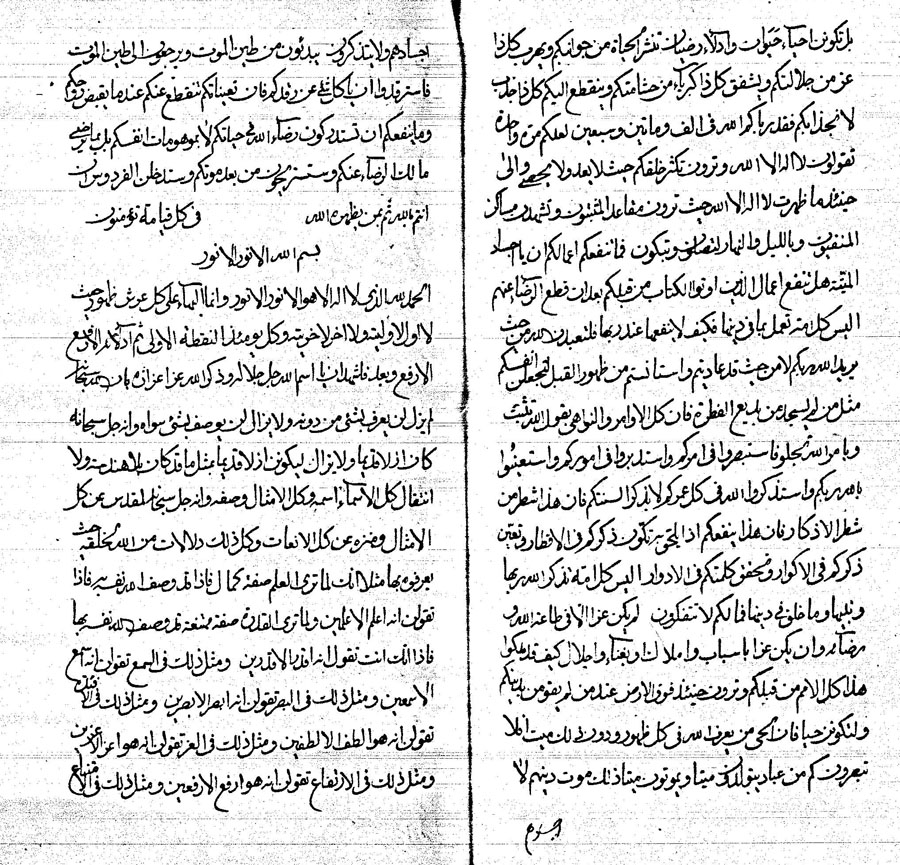 بل تكونن احياء حيوان وادلاء رضيات تنثر الحياة من جوانبكم ويهرب كل ذا
عز من جلالتكم ويشفق كل ذا كبرياء من حشامتكم وينقطع اليكم كل ذا جذب
لانجذابكم فقد رباكم الله في الف ومأتين وسبعين لعلكم مرة واحدة
تقولون لا اله الا الله وترون تكثر خلقكم حيث لا يعد ولا يحصى والى
حينئذ ما ظهرت لا اله الا الله حيث ترون مقاعد المثبتون وتشهدن مساكن
المنفيون وبالليل والنهار لتصلون وتبكون فما تنفعكم اعمالكم ان يا اجساد
الميتة هل تنفع اعمال الذين اوتوا الكتاب من قبلكم بعد ان قطع الرضاء عنهم
اليس كل امة تعمل بما في دينها فكيف لا ينفعها عند ربها فلتعبدن الله من حيث
يريد الله ربكم لا من حيث قد عاديتم واستأنستم من ظهور القبل لتجعلن انفسكم
مثل من لم يسجد عن بديع الفطرة فان كل الاوامر والنواهي بقول الله تثبت
وبامر الله تجلو فاستبصروا في امركم واستدبروا في اموركم واستعينوا
بالله ربكم واستذكروا الله في كل عمركم لا بذكر السنتكم فان هذا شطر من
شطر الاذكار فان هذا ينفعكم اذا بالحق تكون ذكركم في الاقطار وتعين
ذكركم في الاكوار وتحقق كلمتكم في الادوار اليس كل امة تذكر الله ربها
ونبيها وما خلق في دينها فما لكم لا تتفكرون لم يكن عز الا في طاعة الله و
رضائه وان يكن عزا باسباب واملاك وبغناء واجلال كيف قد هلكوا
هذا كل الامم من قبلكم وترون حينئذ فوق الارض عند من لم يقومن بدينكم
ولتكونن حيا فان الحي من يعرف الله في كل ظهور ودون ذلك ميت افلا
تبصرون كم من عباد يتولدون ميتا ويموتون ميتا ذلك موت دينهم لا
اجسادهم
اجسادهم ولا يتذكرون يبدئون من طين الموت ويرجعون الى طين الموت
فاسترفدوا ان يا كل شيء عن رفدكم فان تعيناتكم تنقطع عنكم عندما يقبض روحكم
وما ينفعكم ان تستدركون رضاء الله في حياتكم لا بموهومات انفسكم بل بما يرضى
مالك الرضاء عنكم وستستريحون من بعد موتكم وستدخلن الفردوس ان
انتم بالله ثم بمن يظهره الله في كل قيامة تؤمنون
بسم الله الانور الانور
الحمد لله الذي لا اله الا هو الانور الانور وانما البهاء على كل عرش ظهور حيث
لا اول لاوليته ولا اخر لاخريته وكل يومئذ النقطة الاولى ثم ادلائه الارفع
الارفع وبعد فاشهد ان اسم الله جل جلاله وذكر الله عز اعزازه بان الله سبحانه
لم يزل لن يعرف بشئ من دونه ولا يزال لن يوصف بشئ سواه وانه جل سبحانه
كان ازلا قديما ولا يزال ليكونن ازلا قديما مثل ما قد كان بلا هندسة ولا
انتقال كل الاسماء اسمه وكل الامثال وصفه وانه جل سبحانه المقدس عن كل
الامثال ومنزه عن كل الانعات وكل ذلك دلالات من الله لخلقه حيث
يعرفوه بها مثلا انك لما ترى العلم صفة كمال فاذا قد وصف الله نفسه فاذا
تقولن انه اعلم الاعلمين ولما ترى القدرة صفة ممتنعة قد وصف الله نفسه بها
فاذا انك انت تقول انه اقدر الاقدرين ومثل ذلك في السمع تقولن انه اسمع
الاسمعين ومثل ذلك في البصر تقولن انه ابصر الابصرين ومثل ذلك في
تقولن انه هو الطف الالطفين ومثل ذلك في العز تقولن انه هو اعز الاعززين
ومثل ذلك في الارتفاع تقولن انه هو ارفع الارفعين ومثل ذلك في الامتناع